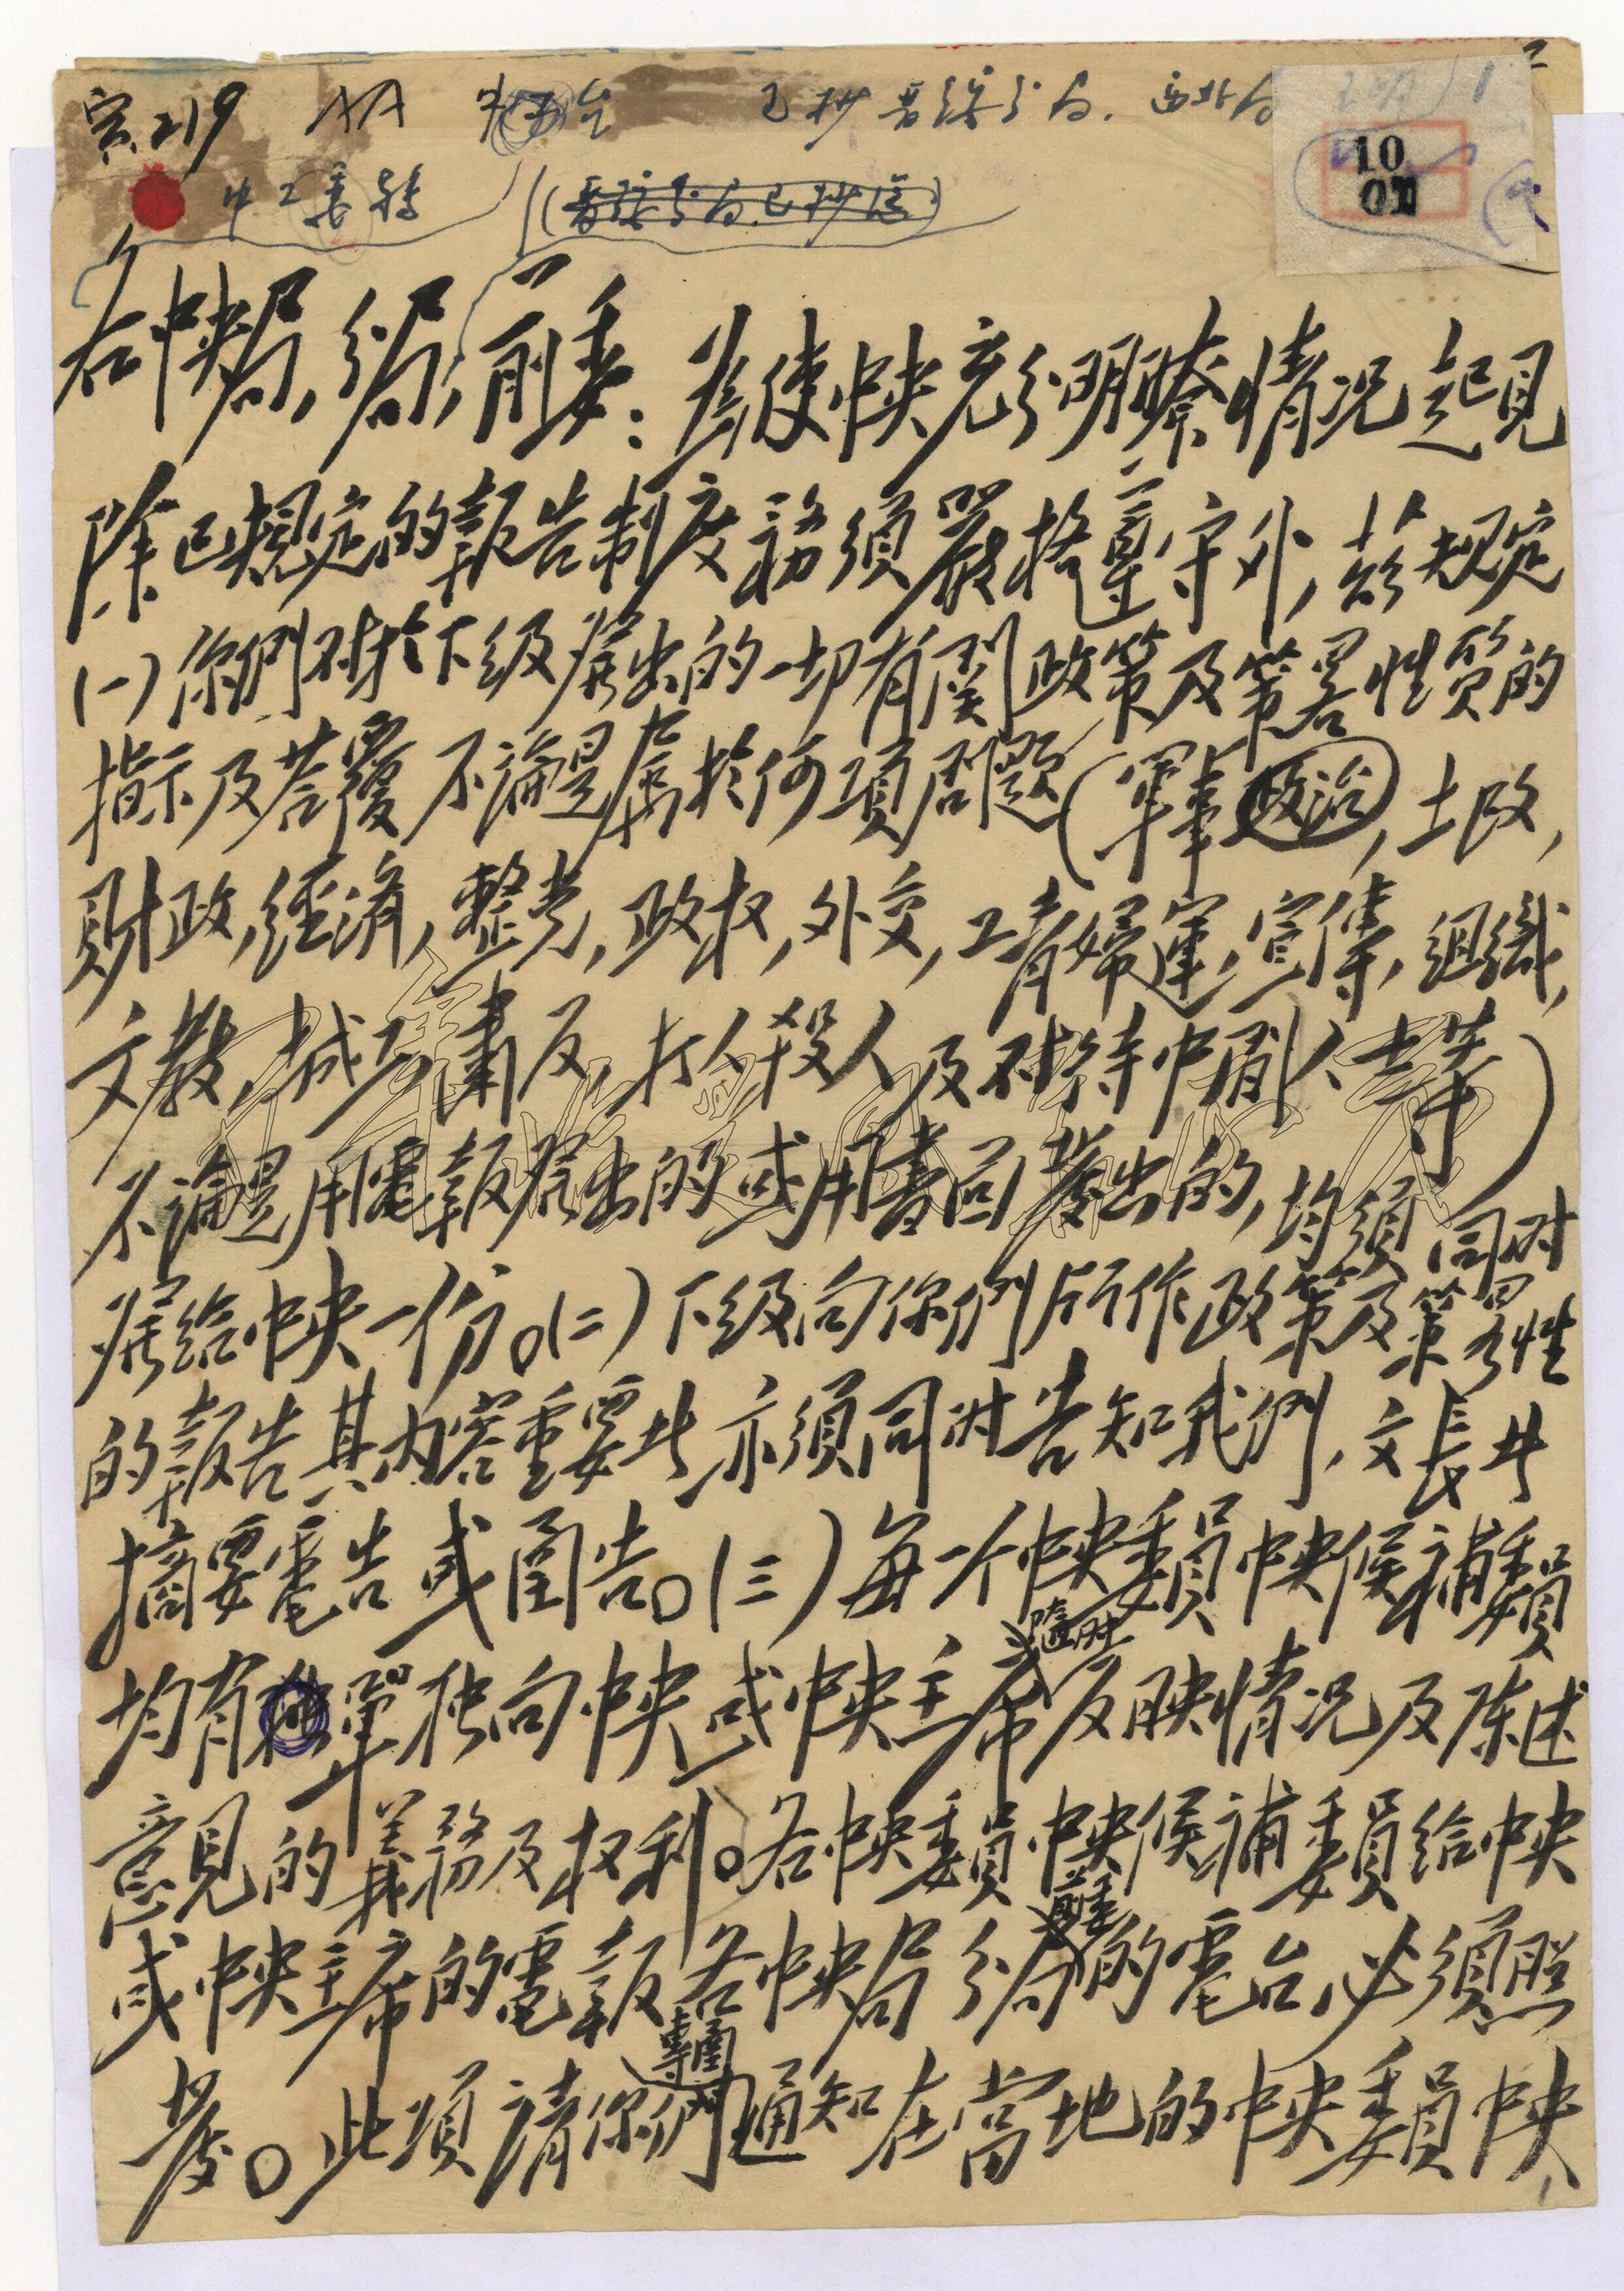 寅.219 AA 已抄晋绥分局.西北局
10
01
中工委转 (晋绥分局.已抄送)
各中央局,分局,前委:為使中央充分明瞭情况起見
除已規定的報告制度務須嚴格遵守外,茲規定
(一)你們对於下級發出的一切有関政策及策畧性質的
指示及荅覆不論是屬於何項問題(軍事政治,土改,
財政,經濟,整党,政权,外交,工青婦運,宣傳,組織,
文教,城工,肅反,打人殺人及对待中間人士等)
不論是用電報發出的或用書面發出的,均須同时
發給中央一份。(二)下級向你們所作政策及策畧性
的報告其内容重要者亦須同时告知我們,文長者
摘要電告或函告。(三)每一个中央委員中央候補委員
隨时
均有單独向中央或中央主席反映情况及陈述
意見的義務及权利。各中央委員中央候補委員給中央
前委
或中央主席的電報各中央局分局的電台必須照
專函
發。此項請你們通知在當地的中央委員中央